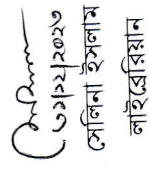 ৩১/১২/২০২৩
সেলিনা ইসলাম
লাইব্রেরিয়ান